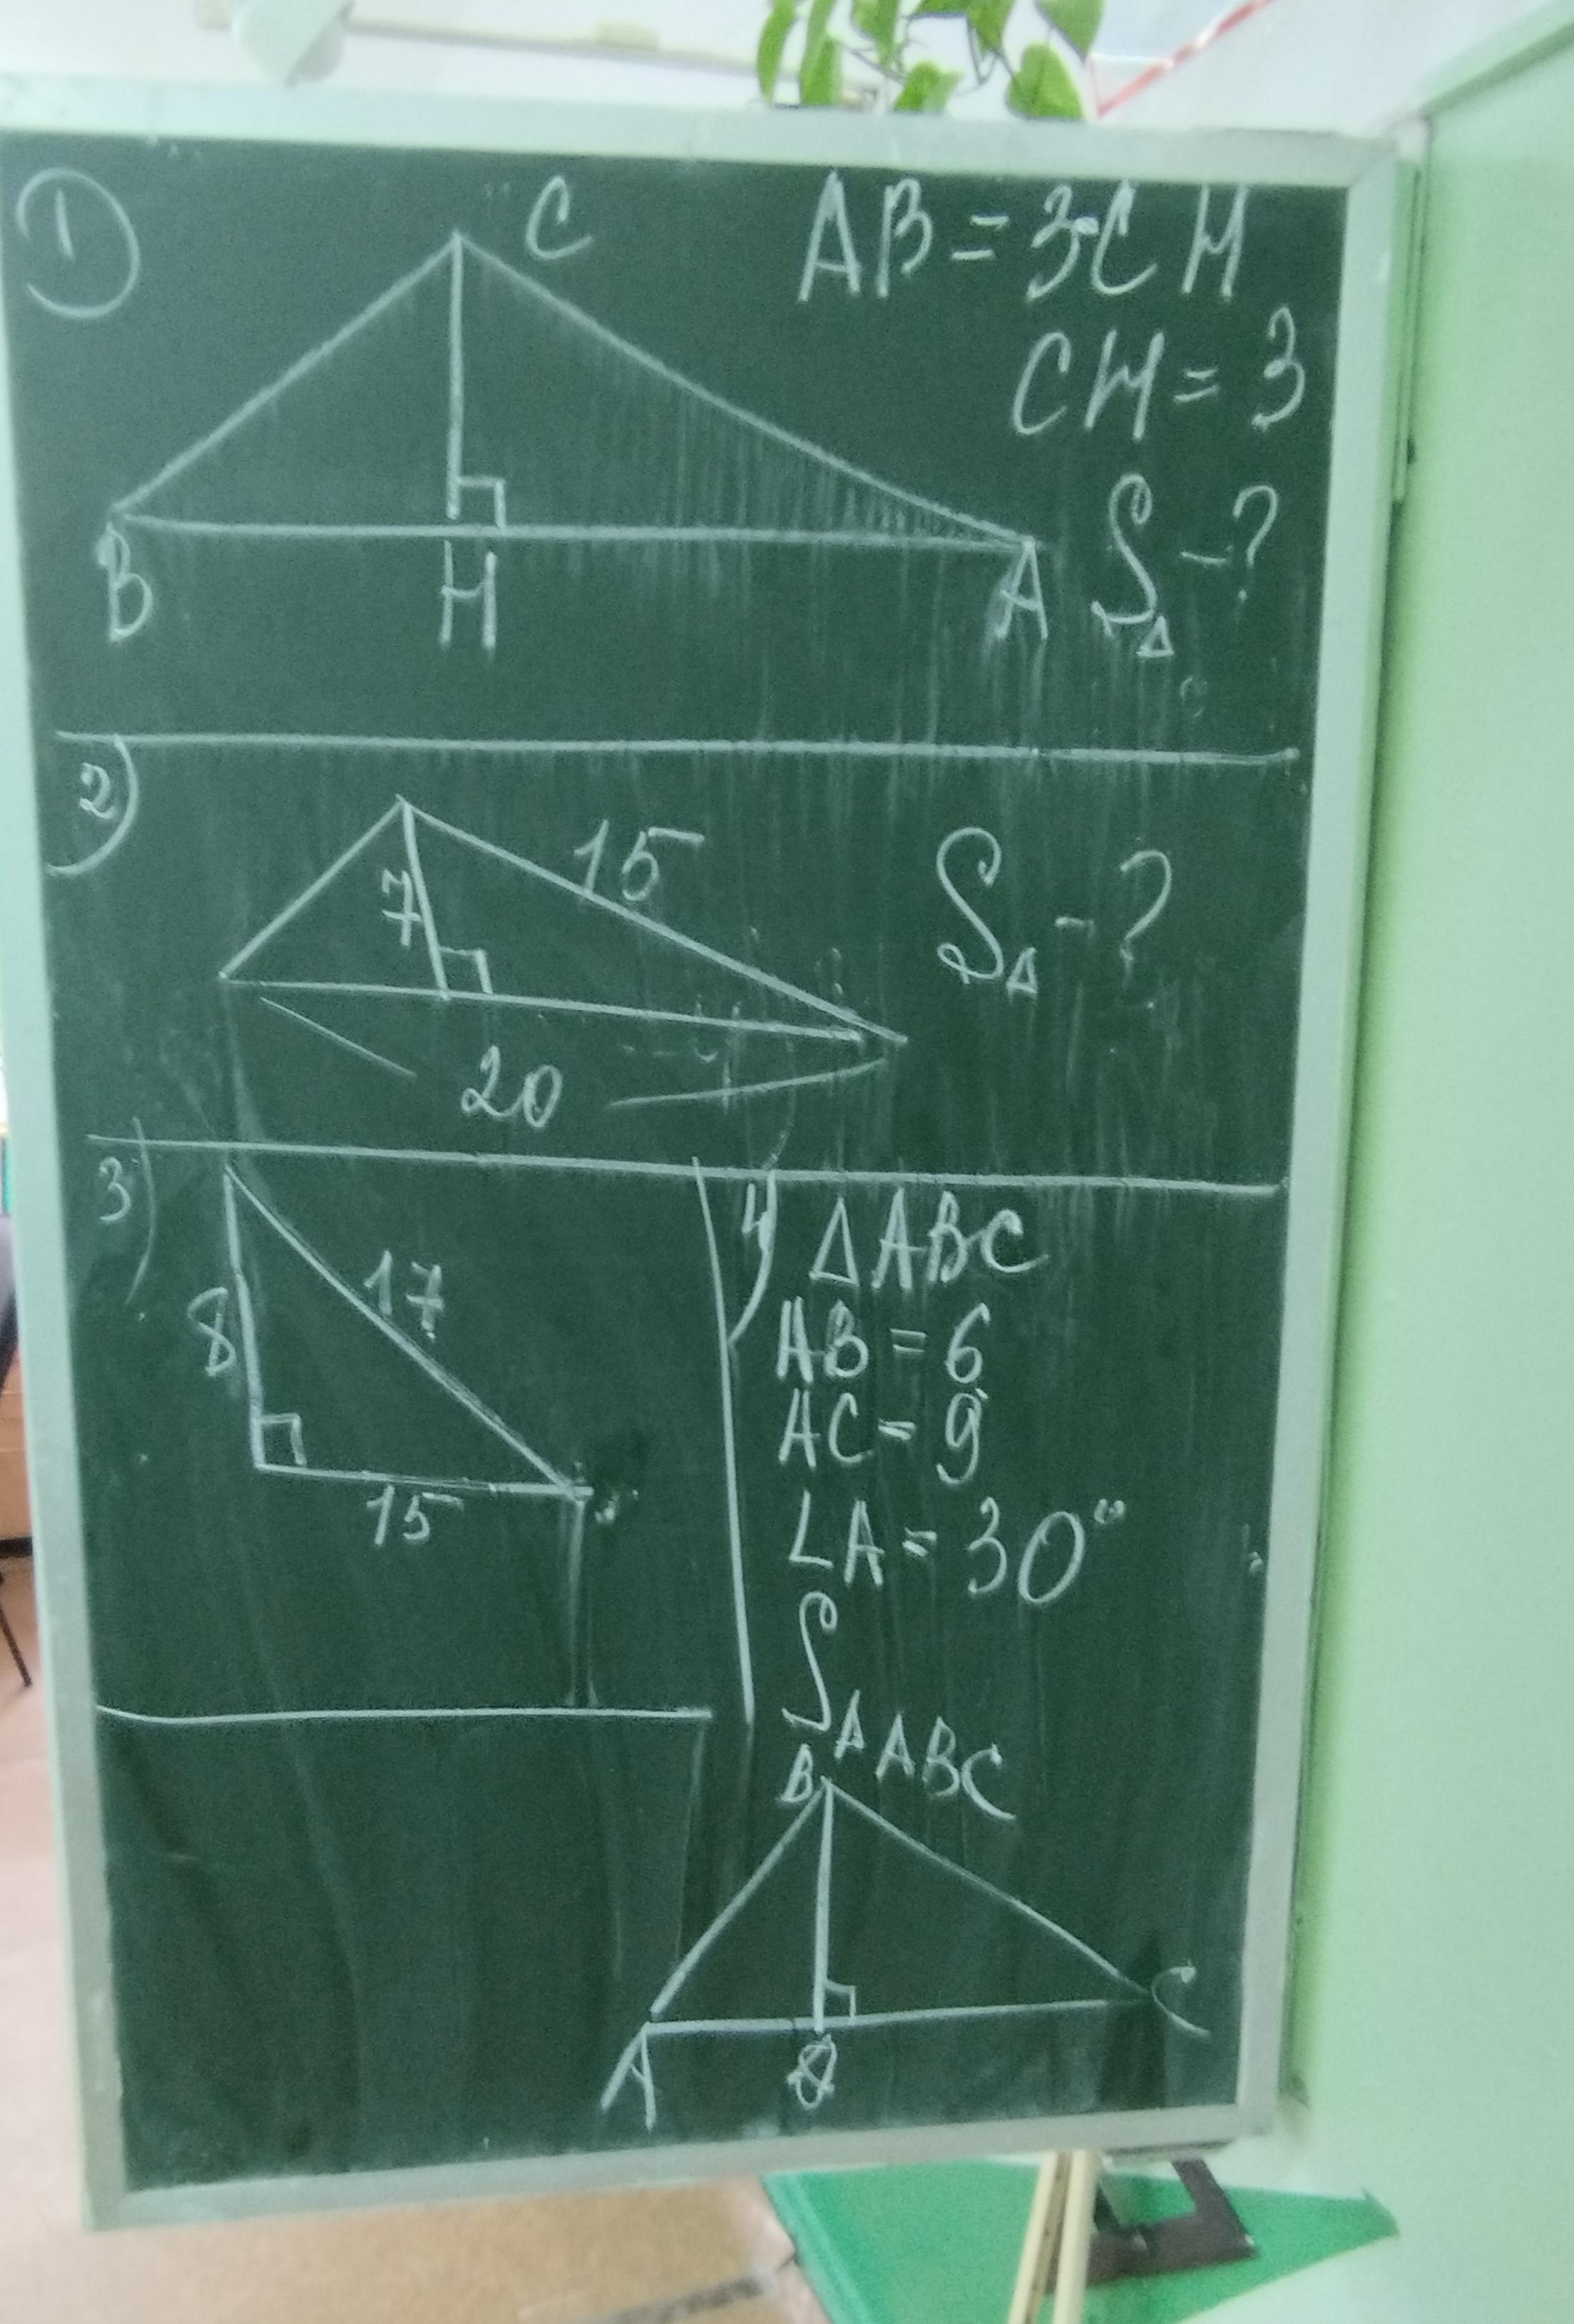 1
C
AB = 3CH
CH = 3
S△ - ?
B
H
A
2)
7
15
20
S△ - ?
3)
8
17
15
4)
△ABC
AB = 6
AC = 9
∠A = 30°
S△ABC
B
A
C